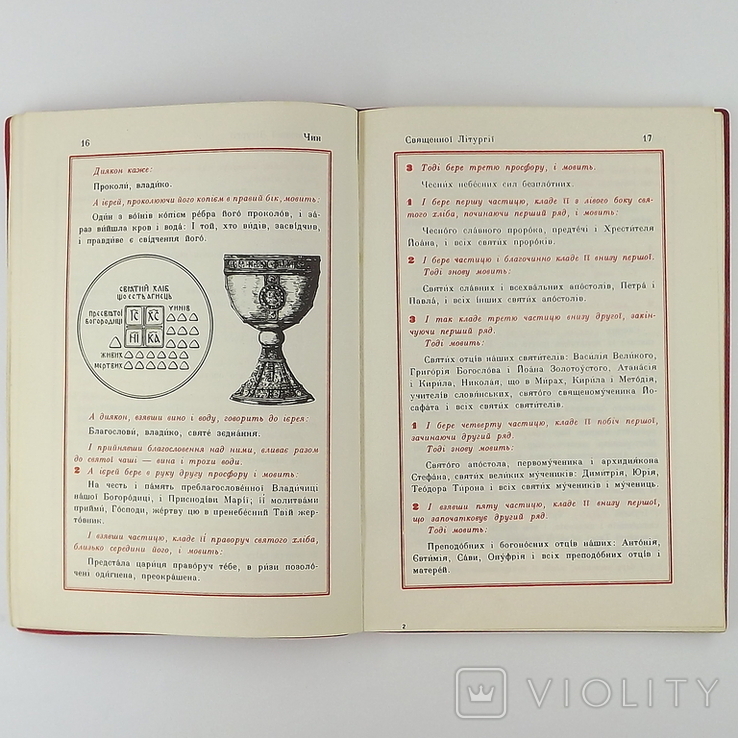 16 Чин
Диякон каже:
Проколи́, влади́ко.
А ієрей, проколюючи його копієм в правий бік, мовить:
Оди́н з во́їнів ко́пієм ре́бра його́ проколо́в, і за́-
раз ви́йшла кров і вода́: І той, хто ви́дів, засві́дчив,
і правди́ве є сві́дчення його́.
СВЯТИЙ ХЛІБ
ЩО ЄСТЬ АГНЕЦЬ
ПРЕСВЯТОЇ
БОГОРОДИЦІ
ЧИНІВ
ІС ХС
НІ КА
ЖИВИХ
МЕРТВИХ
А диякон, взявши вино і воду, говорить до ієрея:
Благослови́, влади́ко, святе́ зєдна́ння.
І прийнявши благословення над ними, вливає разом
до святої чаші — вина і трохи води.
2 А ієрей бере в руку другу просфору і мовить:
На честь і па́мять преблагослове́нної Влади́чиці
на́шої Богоро́диці, і Присноді́ви Марі́ї; її́ моли́твами
прийми́, Го́споди, же́ртву цю в пренебе́сний Твій же́р-
товник.
І взявши частицю, кладе її праворуч святого хліба,
близько середини його, і мовить:
Предста́ла цари́ця право́руч те́бе, в ри́зи позоло́-
чені одя́гнена, преокра́шена.
Священної Літургії 17
3 Тоді бере третю просфору, і мовить.
Че́сних небе́сних сил безпло́тних.
1 І бере першу частицю, кладе її з лівого боку свя-
того хліба, починаючи перший ряд, і мовить:
Чесно́го сла́вного проро́ка, предте́чі і Хрести́теля
Йоа́на, і всіх святи́х проро́ків.
2 І бере частицю і благочинно кладе її внизу першої.
Тоді знову мовить:
Святи́х сла́вних і всехва́льних апо́столів, Петра́ і
Па́вла, і всіх і́нших святи́х апо́столів.
3 І так кладе третю частицю внизу другої, закін-
чуючи перший ряд.
Тоді мовить:
Святи́х отці́в на́ших святи́телів: Васи́лія Вели́кого,
Григо́рія Богосло́ва і Йоа́на Золотоу́стого, Атана́сія
і Кири́ла, Никола́я, що в Ми́рах, Кири́ла і Мето́дія,
учи́телів словя́нських, свято́го священому́ченика Йо-
сафа́та і всіх святи́х святи́телів.
1 І бере четверту частицю, кладе її побіч першої,
зачинаючи другий ряд.
Тоді знову мовить:
Свято́го апо́стола, первому́ченика і архидия́кона
Стефа́на, святи́х вели́ких му́чеників: Дими́трія, Ю́рія,
Тео́дора Ти́рона і всіх святи́х му́чеників і му́чениць.
2 І взявши пяту частицю, кладе її внизу першої,
що започатковує другий ряд.
Тоді мовить:
Преподо́бних і богоно́сних отці́в на́ших: Анто́нія,
Євти́мія, Са́ви, Ону́фрія і всіх преподо́бних отці́в і
матере́й.
2
VIOLITY